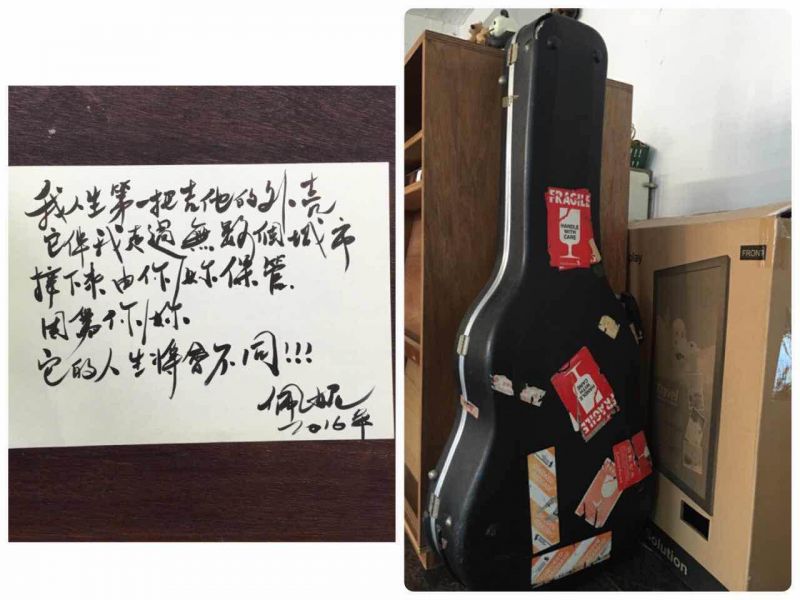 我人生第一把吉他的外壳
它伴我走過無數個城市
接下來由你/妳保管
因為你/妳
它的人生將會不同!!!
佩妮
2016年
FRAGILE
HANDLE
WITH
CARE
FRAGILE
HANDLE
WITH
CARE
FRONT
play
olution